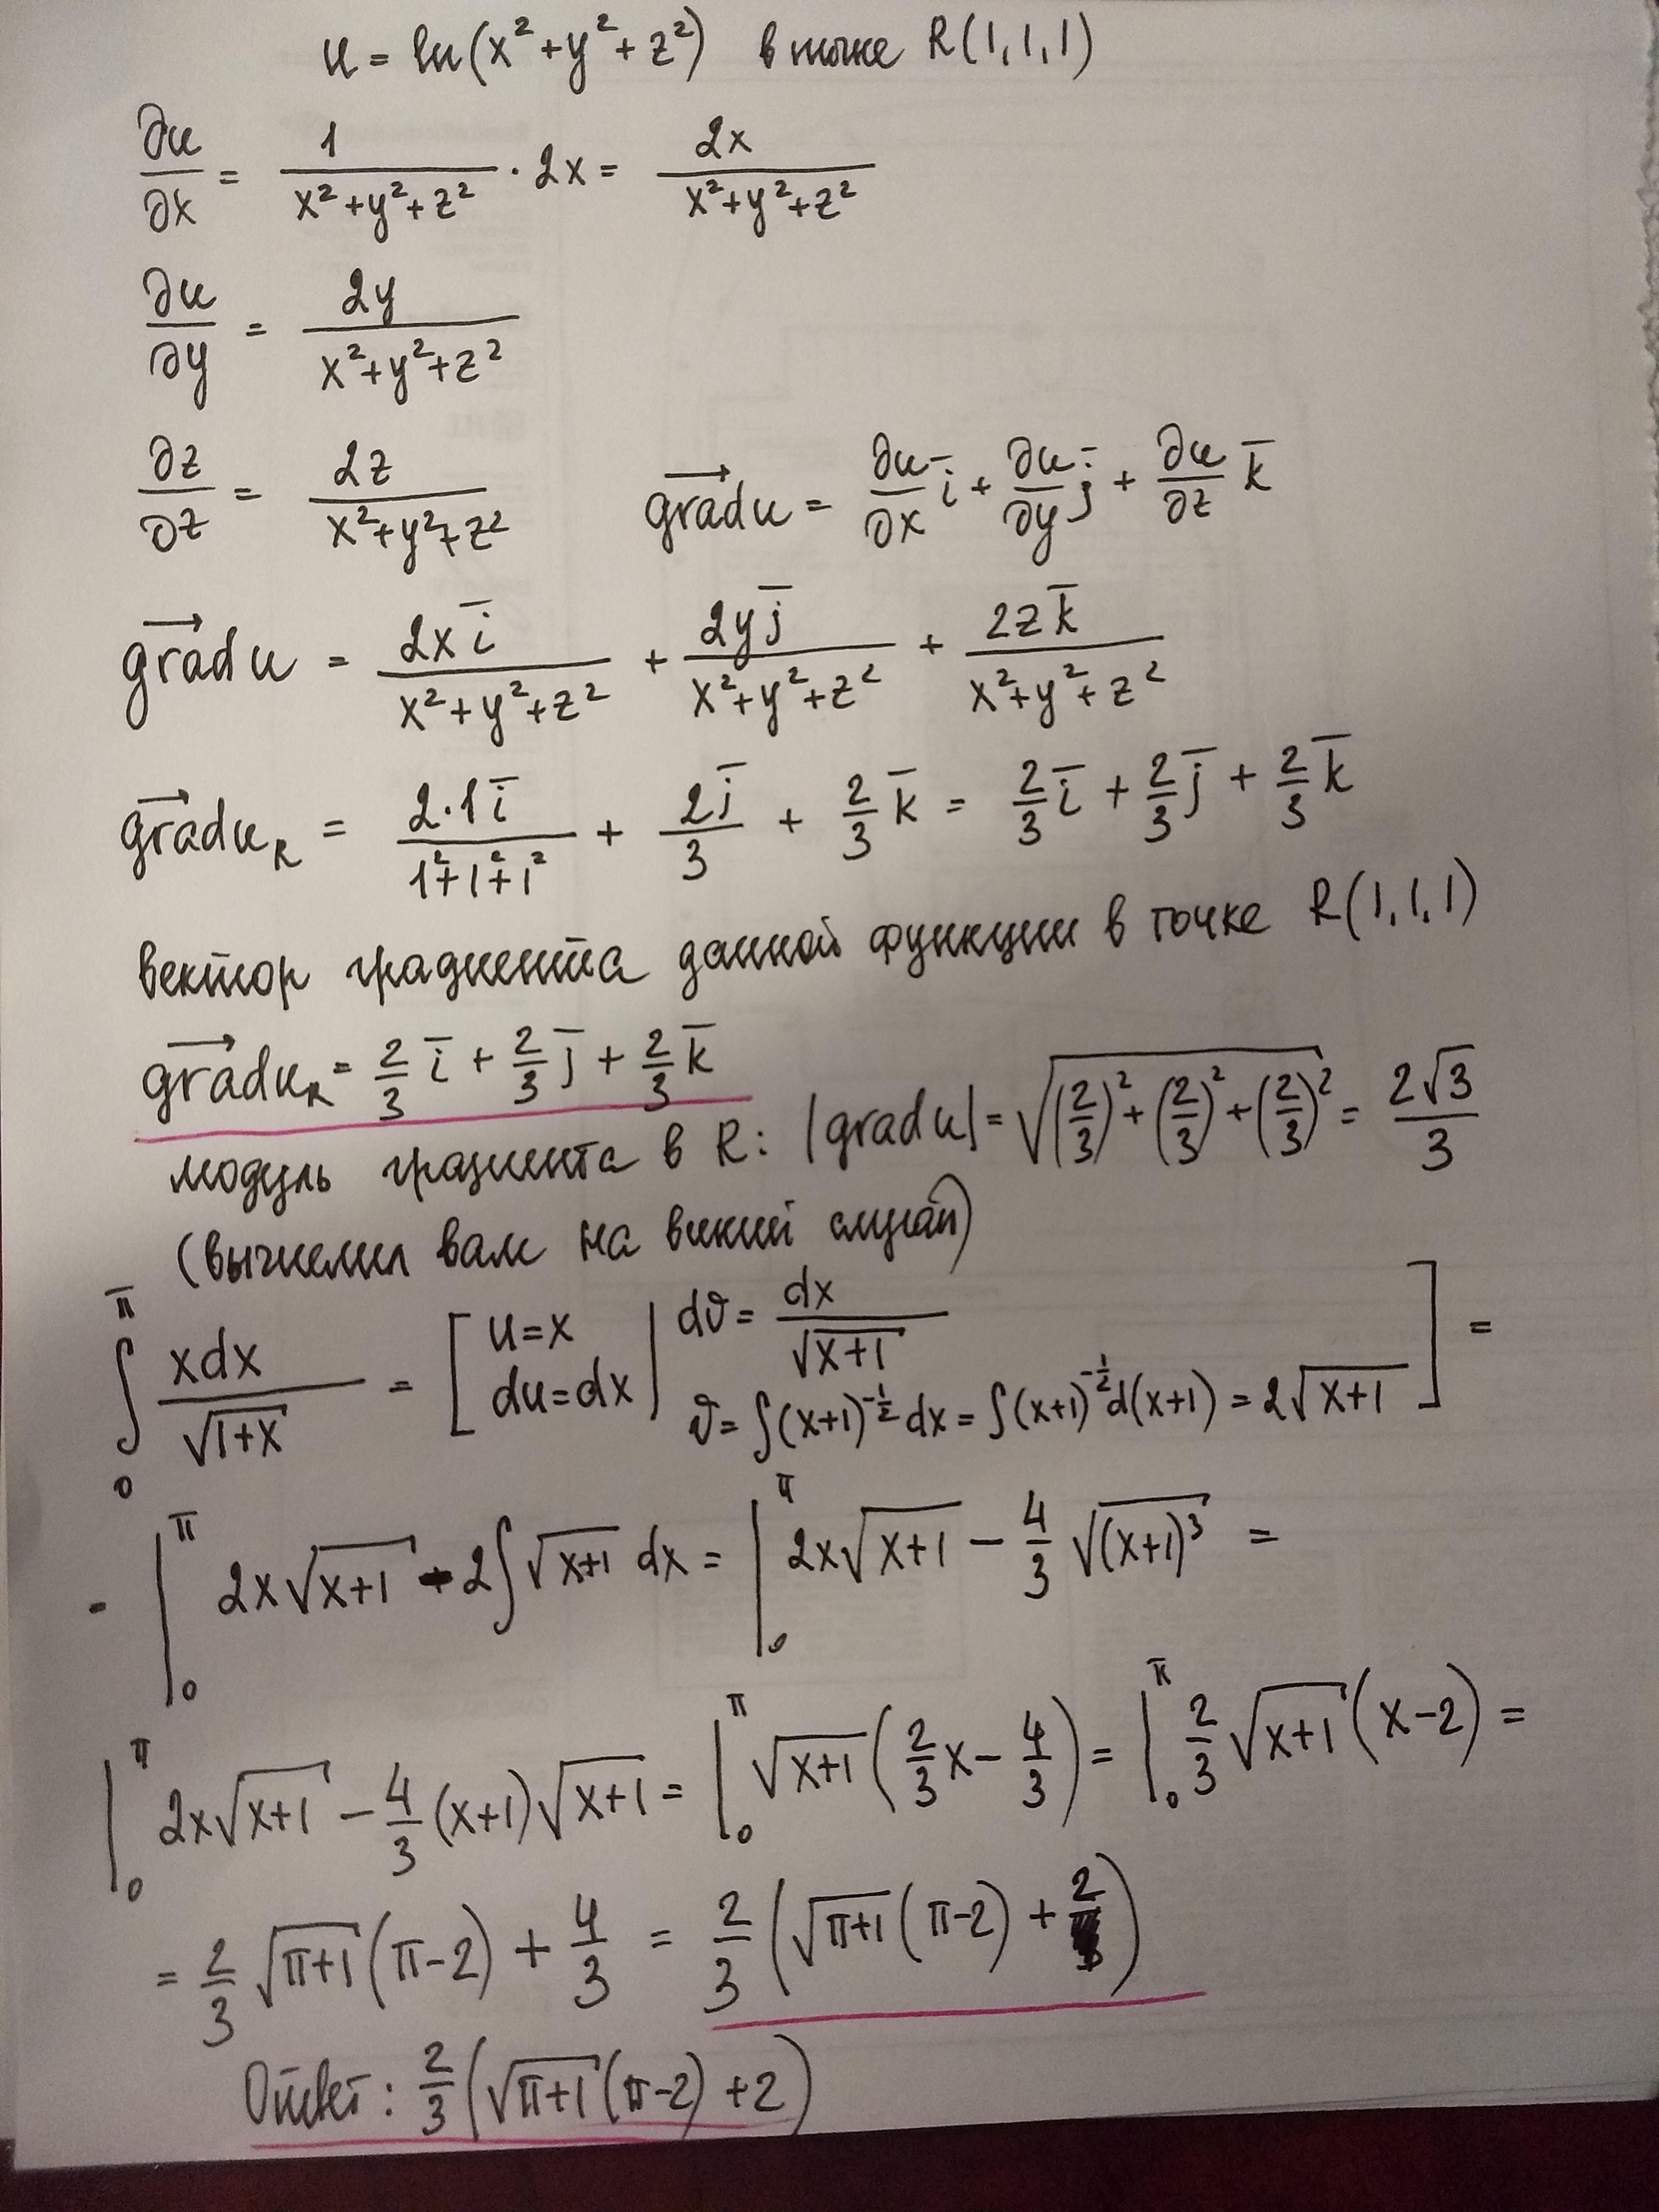 u = ln(x²+y²+z²) в точке R(1,1,1)
∂u/∂x = 1/(x²+y²+z²) · 2x = 2x/(x²+y²+z²)
∂u/∂y = 2y/(x²+y²+z²)
∂z/∂z = 2z/(x²+y²+z²) grad u = ∂u/∂x i + ∂u/∂y j + ∂u/∂z k
grad u = 2x i/(x²+y²+z²) + 2y j/(x²+y²+z²) + 2z k/(x²+y²+z²)
grad u_R = 2·1 i/(1²+1²+1²) + 2 j/3 + 2/3 k = 2/3 i + 2/3 j + 2/3 k
вектор градиента данной функции в точке R(1,1,1)
grad u_R = 2/3 i + 2/3 j + 2/3 k
модуль градиента в R: |grad u| = √((2/3)²+(2/3)²+(2/3)²) = 2√3/3
(вычислил вам на всякий случай)
∫₀^π xdx/√(1+x) = [u=x du=dx | dϑ = dx/√(x+1) ϑ = ∫(x+1)^(-1/2) dx = ∫(x+1)^(-1/2) d(x+1) = 2√(x+1)] =
- |₀^π 2x√(x+1) - 2∫√(x+1) dx = |₀^π 2x√(x+1) - 4/3 √((x+1)³) =
|₀^π 2x√(x+1) - 4/3 (x+1)√(x+1) = |₀^π √(x+1) (2/3 x - 4/3) = |₀^π 2/3 √(x+1) (x-2) =
= 2/3 √(π+1) (π-2) + 4/3 = 2/3 (√(π+1) (π-2) + 2)
Ответ: 2/3 (√(π+1) (π-2) + 2)